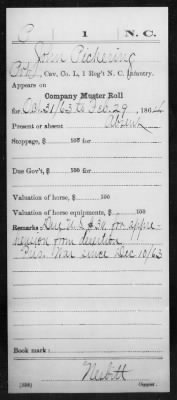 C 1 N. C.
John Pickering
Pvt, Cav, Co. L, 1 Reg't N. C. Infantry.
Appears on
Company Muster Roll
for Oct 31/63 to Feb 29, 1864
Present or absent Absent
Stoppage, $ 100 for
Due Gov't, $ 100
Valuation of horse, $ 100
Valuation of horse equipments, $ 100
Remarks: Due U.S. $30 for appre-
hension from desertion
Pris. War since Dec 10/63
Book mark:
Nesbitt
(358) Copyist.